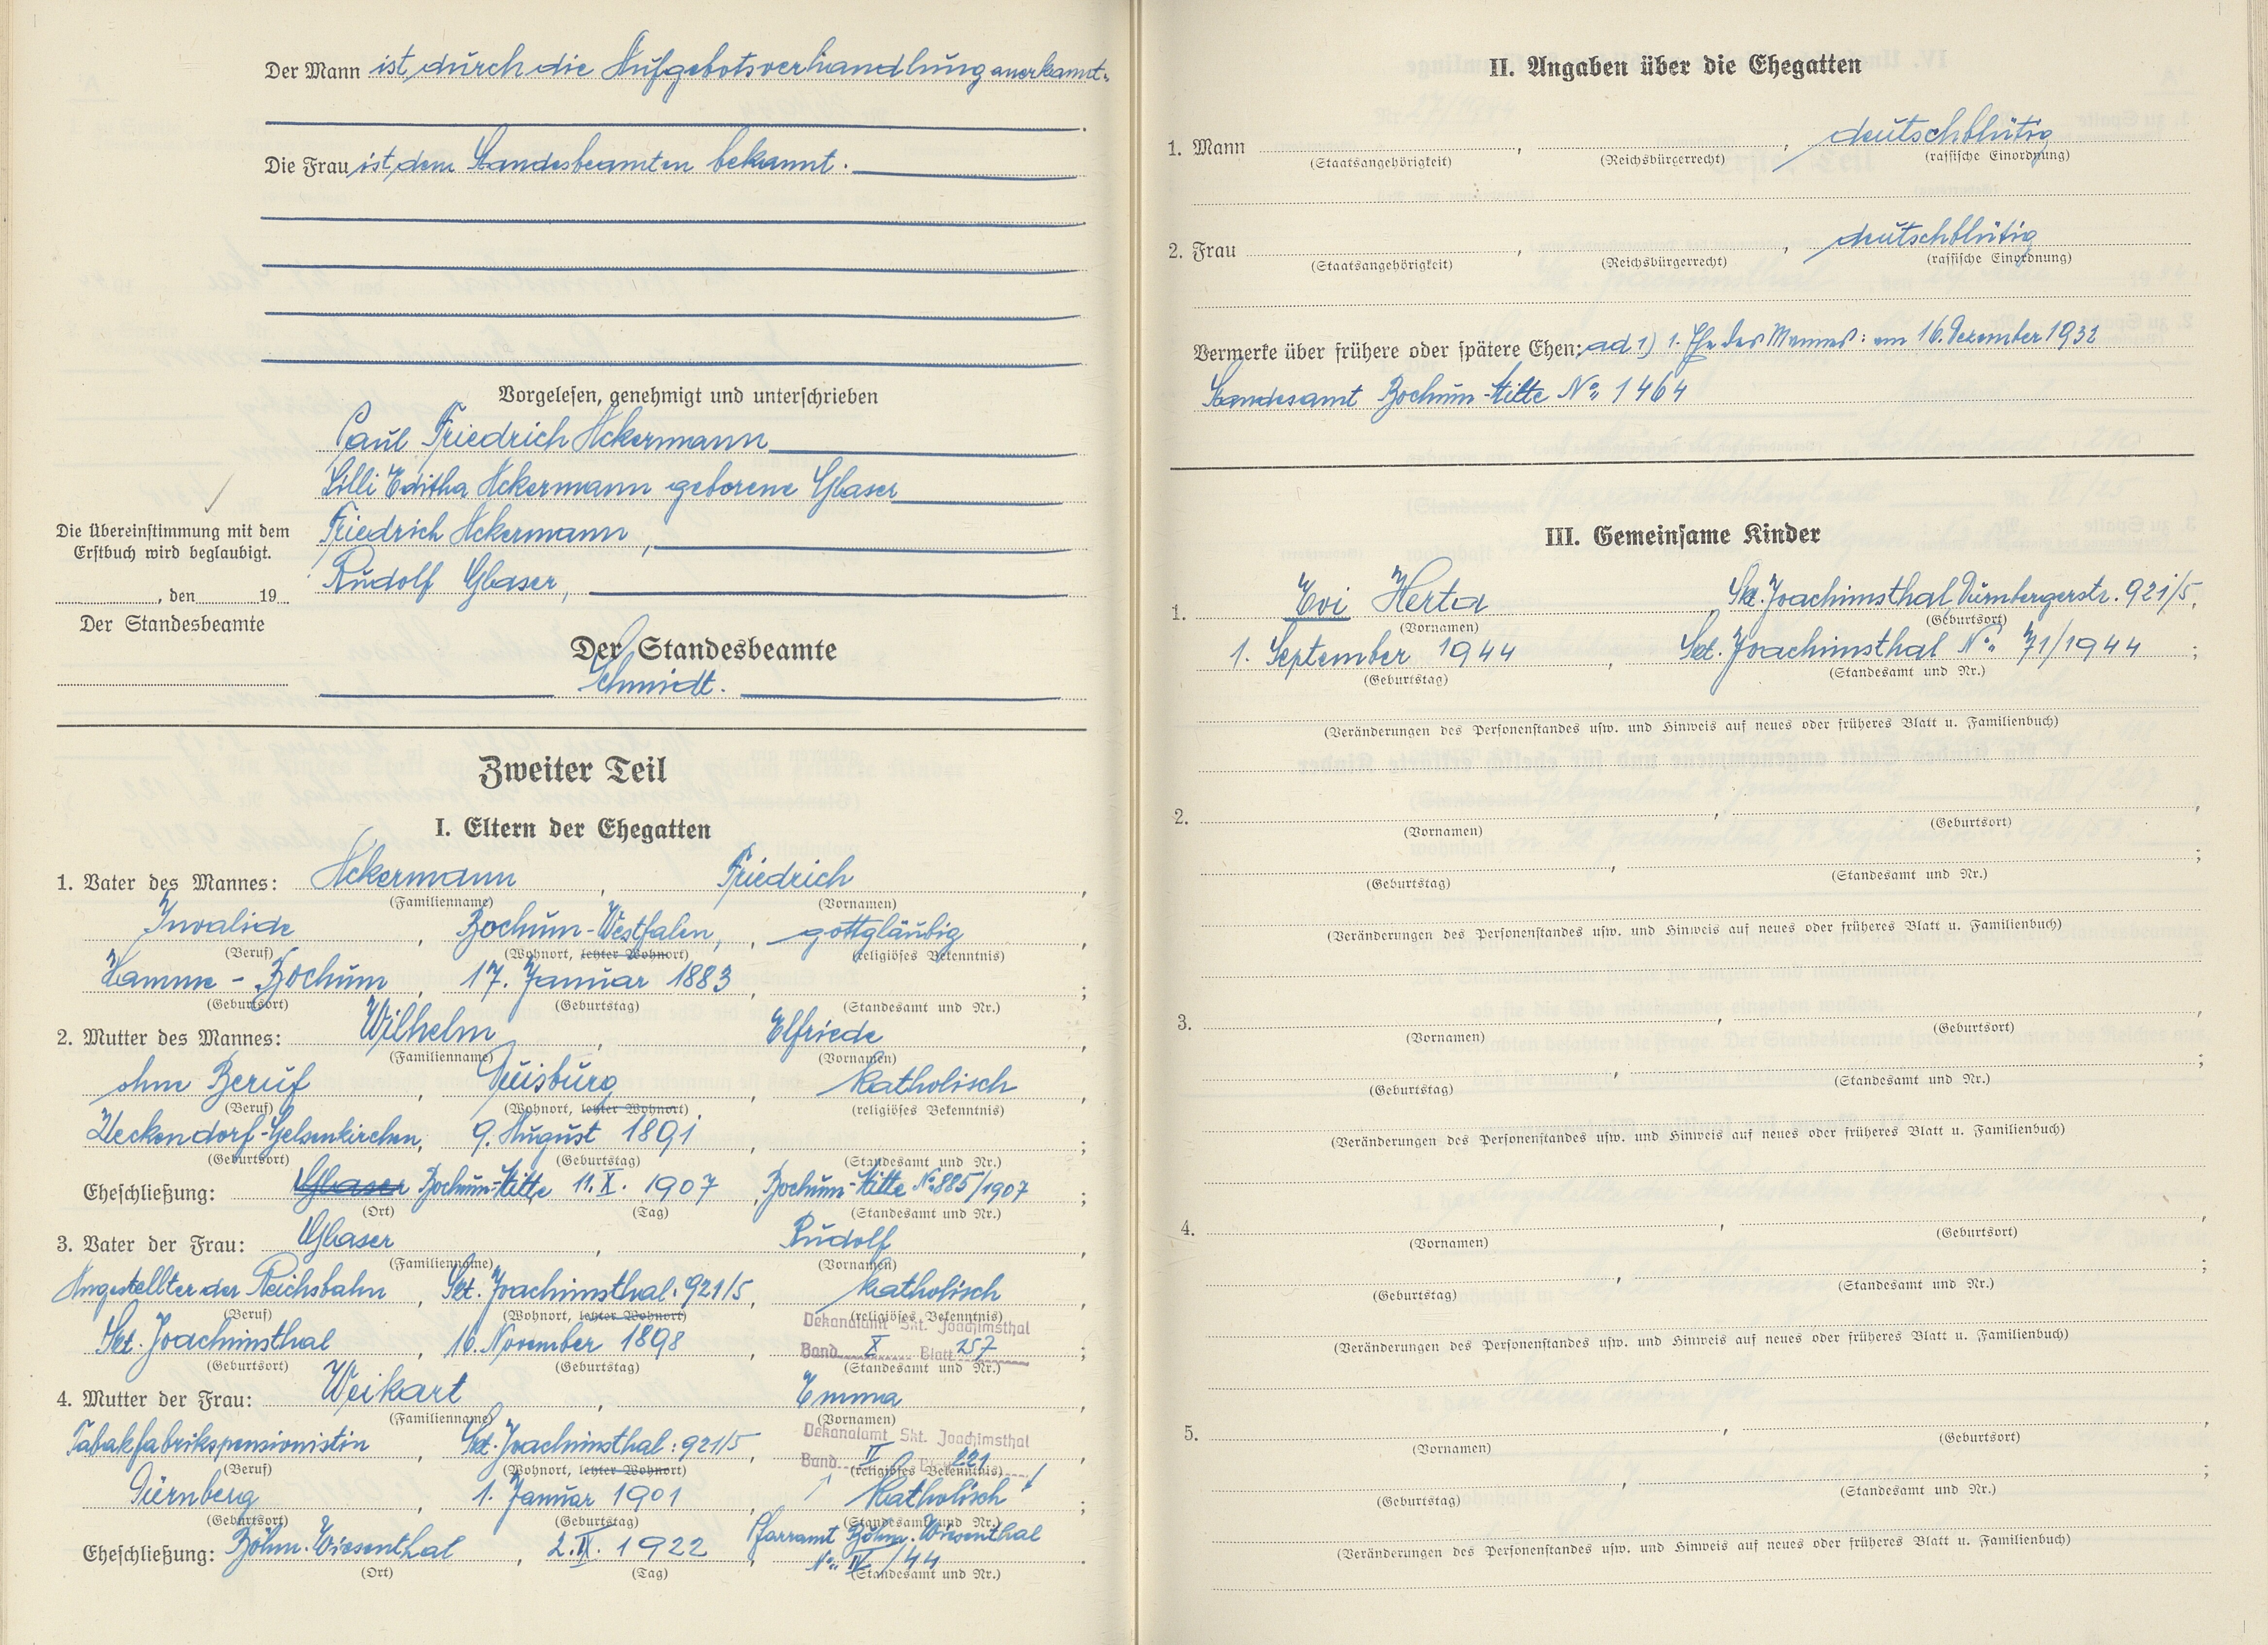 Der Mann ist, durch die Aufgebotsverhandlung anerkannt.
Die Frau ist, dem Standesbeamten bekannt.
Vorgelesen, genehmigt und unterschrieben
Paul Friedrich Ackermann
Lilli Editha Ackermann geborene Glaser
Friedrich Ackermann,
Rudolf Glaser,
Die Übereinstimmung mit dem
Erstbuch wird beglaubigt.
, den 19
Der Standesbeamte
Der Standesbeamte
Schmidt.
Zweiter Teil
I. Eltern der Ehegatten
1. Vater des Mannes: Ackermann, Friedrich,
(Familienname) (Vornamen)
Invalide, Bochum-Westfalen, gottgläubig,
(Beruf) (Wohnort, letzter Wohnort) (religiöses Bekenntnis)
Hamme - Bochum, 17. Januar 1883, ;
(Geburtsort) (Geburtstag) (Standesamt und Nr.)
2. Mutter des Mannes: Wilhelm, Elfriede,
(Familienname) (Vornamen)
ohne Beruf, Duisburg, katholisch,
(Beruf) (Wohnort, letzter Wohnort) (religiöses Bekenntnis)
Ueckendorf-Gelsenkirchen, 9. August 1891, ;
(Geburtsort) (Geburtstag) (Standesamt und Nr.)
Eheschließung: Glaser Bochum-Mitte 11. X. 1907, Bochum-Mitte No. 885/1907;
(Ort) (Tag) (Standesamt und Nr.)
3. Vater der Frau: Glaser, Rudolf,
(Familienname) (Vornamen)
Angestellter der Reichsbahn, Skt. Joachimsthal. 921/5, katholisch,
(Beruf) (Wohnort, letzter Wohnort) (religiöses Bekenntnis)
Dekanalamt Skt. Joachimsthal
Skt. Joachimsthal, 16. November 1898, Band X Blatt 257;
(Geburtsort) (Geburtstag) (Standesamt und Nr.)
4. Mutter der Frau: Weikart, Emma,
(Familienname) (Vornamen)
Dekanalamt Skt. Joachimsthal
Tabakfabrikspensionistin, Skt. Joachimsthal: 921/5, Band II Blatt 221,
(Beruf) (Wohnort, letzter Wohnort) (religiöses Bekenntnis)
Dürnberg, 1. Januar 1901, katholisch;
(Geburtsort) (Geburtstag) (Standesamt und Nr.)
Eheschließung: Böhm. Wiesenthal, 2. IX. 1922, Pfarramt Böhm. Wiesenthal
No. IV/44.
(Ort) (Tag) (Standesamt und Nr.)
II. Angaben über die Ehegatten
1. Mann , , deutschblütig
(Staatsangehörigkeit) (Reichsbürgerrecht) (rassische Einordnung)
2. Frau , , deutschblütig
(Staatsangehörigkeit) (Reichsbürgerrecht) (rassische Einordnung)
Vermerke über frühere oder spätere Ehen: ad 1) 1. Ehe des Mannes: am 16. Dezember 1932
Standesamt Bochum-Mitte No. 1464
III. Gemeinsame Kinder
1. Evi Herta, Skt. Joachimsthal, Dürnbergerstr. 921/5,
(Vornamen) (Geburtsort)
1. September 1944, Skt. Joachimsthal No. 71/1944;
(Geburtstag) (Standesamt und Nr.)
(Veränderungen des Personenstandes usw. und Hinweis auf neues oder früheres Blatt u. Familienbuch)
2. , ,
(Vornamen) (Geburtsort)
, ;
(Geburtstag) (Standesamt und Nr.)
(Veränderungen des Personenstandes usw. und Hinweis auf neues oder früheres Blatt u. Familienbuch)
3. , ,
(Vornamen) (Geburtsort)
, ;
(Geburtstag) (Standesamt und Nr.)
(Veränderungen des Personenstandes usw. und Hinweis auf neues oder früheres Blatt u. Familienbuch)
4. , ,
(Vornamen) (Geburtsort)
, ;
(Geburtstag) (Standesamt und Nr.)
(Veränderungen des Personenstandes usw. und Hinweis auf neues oder früheres Blatt u. Familienbuch)
5. , ,
(Vornamen) (Geburtsort)
, ;
(Geburtstag) (Standesamt und Nr.)
(Veränderungen des Personenstandes usw. und Hinweis auf neues oder früheres Blatt u. Familienbuch)